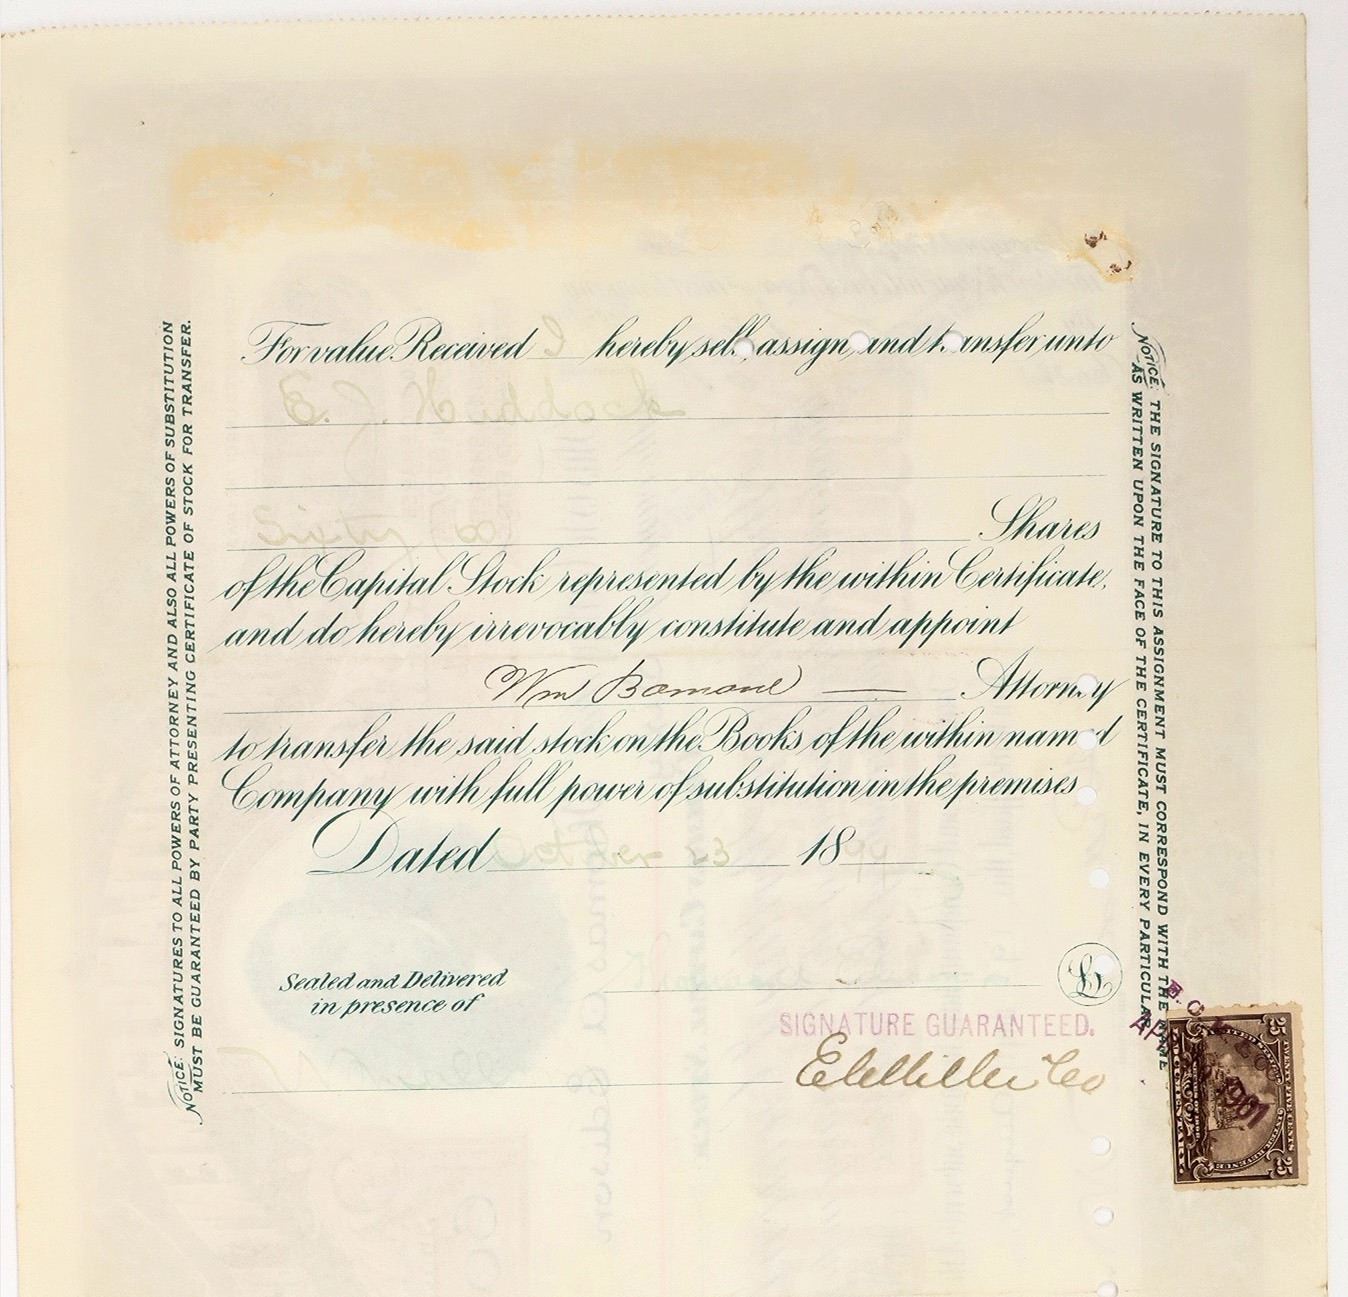 For value Received I hereby sell, assign and transfer unto
E. J. Haddock
Sixty Shares
of the Capital Stock represented by the within Certificate,
and do hereby irrevocably constitute and appoint
Wm Attorney
to transfer the said stock on the Books of the within named
Company with full power of substitution in the premises
Dated October 23 18
Sealed and Delivered
in presence of
SIGNATURE GUARANTEED.
E C Miller & Co
NOTICE: SIGNATURES TO ALL POWERS OF ATTORNEY AND ALSO ALL POWERS OF SUBSTITUTION
MUST BE GUARANTEED BY PARTY PRESENTING CERTIFICATE OF STOCK FOR TRANSFER.
NOTICE: THE SIGNATURE TO THIS ASSIGNMENT MUST CORRESPOND WITH THE NAME
AS WRITTEN UPON THE FACE OF THE CERTIFICATE, IN EVERY PARTICULAR
TWENTY FIVE CENTS
25 25
DOCUMENTARY
SERIES OF 1898
INTER. REVENUE
1901